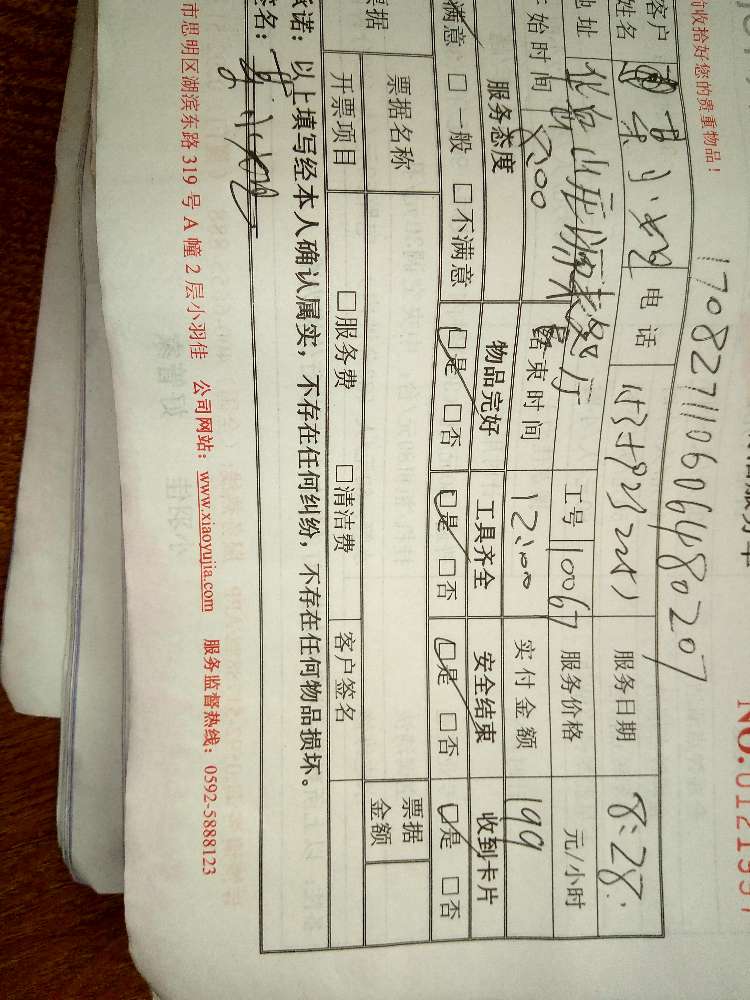 收拾好您的贵重物品！
1708271106060480207
NO.0121957
客户姓名 电话 服务日期 8:28:
地址 工号 10067 服务价格 元/小时
开始时间 8:00 结束时间 12:00 实付金额 199
服务态度 物品完好 工具齐全 安全结束 收到卡片
满意 □一般 □不满意 □是 □否 □是 □否 □是 □否 □是 □否
票据 票据名称 票据金额
开票项目 □服务费 □清洁费 客户签名
承诺：以上填写经本人确认属实，不存在任何纠纷，不存在任何物品损坏。
签名：
市思明区湖滨东路 319 号 A 幢 2 层小羽佳 公司网站：www.xiaoyujia.com 服务监督热线：0592-5888123